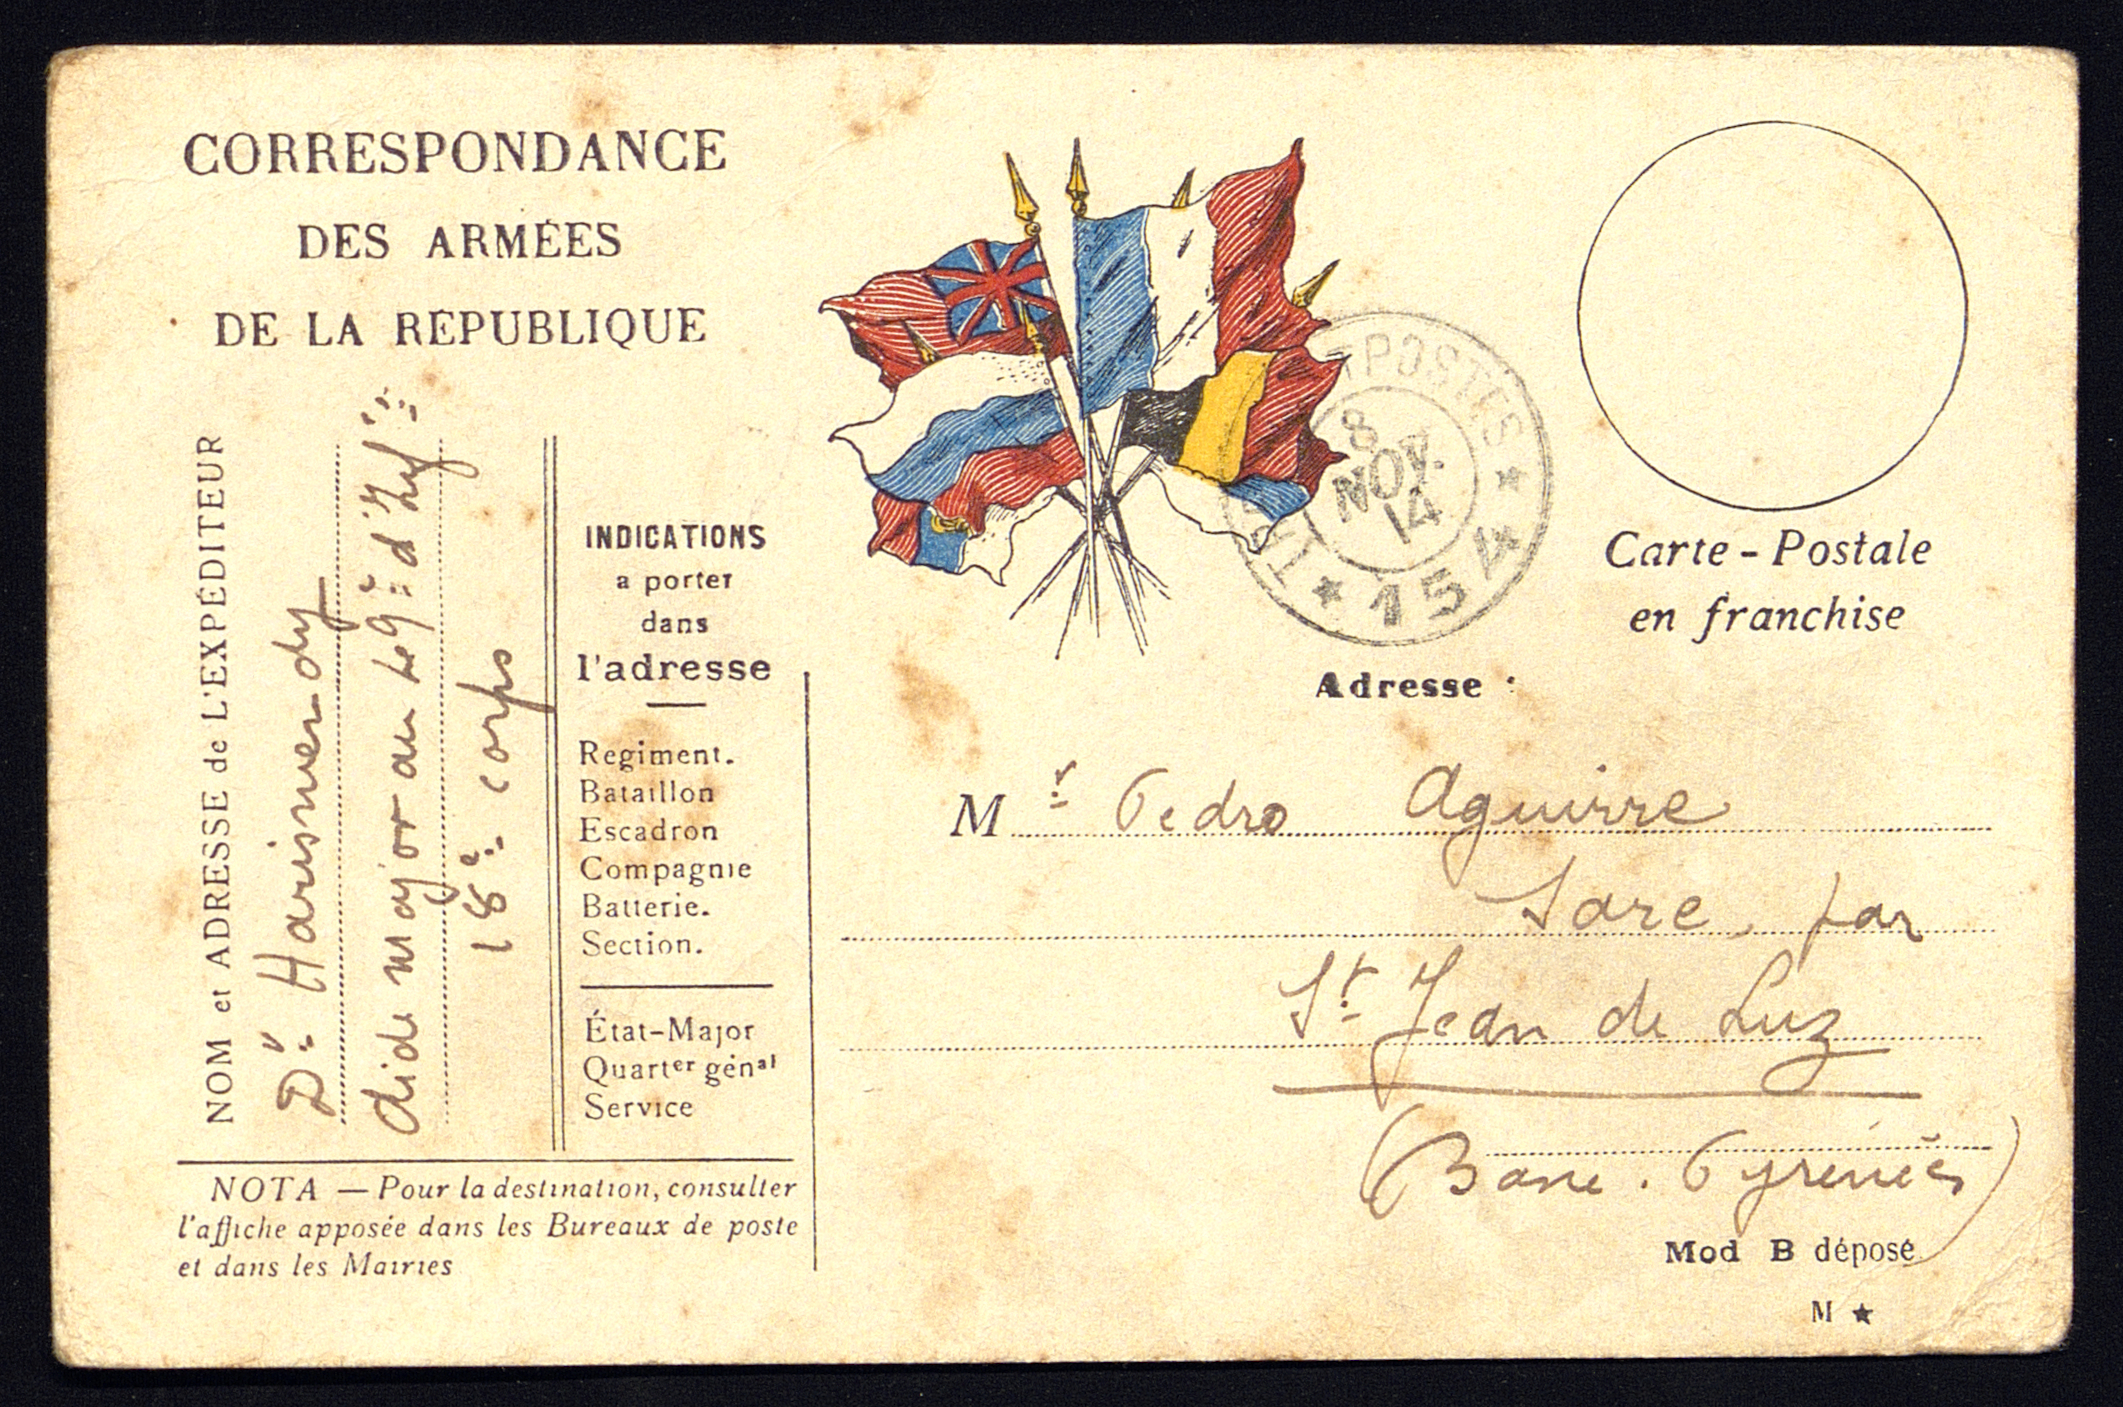 CORRESPONDANCE
DES ARMÉES
DE LA RÉPUBLIQUE
NOM et ADRESSE de L'EXPÉDITEUR
Dr Harismendy
aide major au 49e d'Infie
18e corps
INDICATIONS
a porter
dans
l'adresse
Regiment.
Bataillon
Escadron
Compagnie
Batterie.
Section.
État-Major
Quartier génal
Service
NOTA — Pour la destination, consulter
l'affiche apposée dans les Bureaux de poste
et dans les Mairies
POSTES
8
NOV.
14
* 154 *
Carte-Postale
en franchise
Adresse :
Mr Pedro Aguirre
Sare, par
St Jean de Luz
(Basse. Pyrénées)
Mod B déposé
M ★